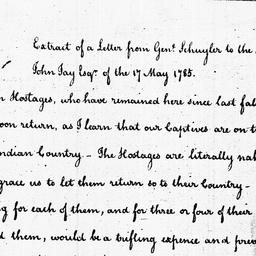 Extract of a Letter from Genl. Schuyler to the
John Jay Esqr. of the 17 May 1785.
n Hostages, who have remained here since last fal
oon return, as I learn that our Captives are on t
ndian Country _ The Hostages are literally nak
grace us to let them return so to their Country _
g for each of them, and for three or four of their
d them, would be a trifling expence and prev